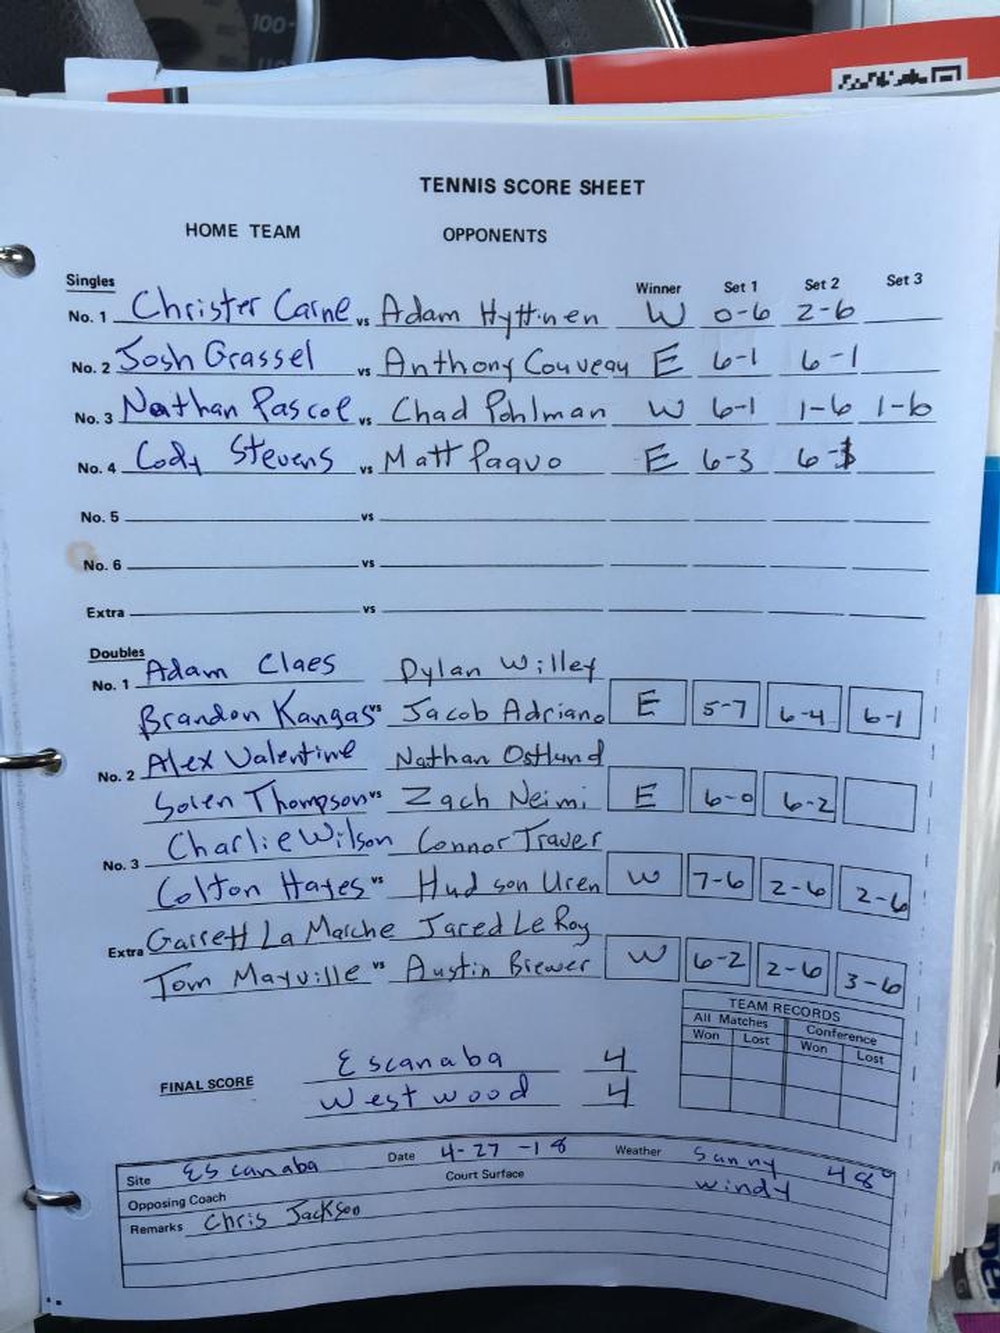 100
TENNIS SCORE SHEET
HOME TEAM OPPONENTS
Singles Winner Set 1 Set 2 Set 3
No. 1 Christer Carne vs Adam Hyttinen W 0-6 2-6
No. 2 Josh Grassel vs Anthony Couveau E 6-1 6-1
No. 3 Nathan Pascoe vs Chad Pohlman W 6-1 1-6 1-6
No. 4 Cody Stevens vs Matt Paquo E 6-3 6-
No. 5 vs
No. 6 vs
Extra vs
Doubles
No. 1 Adam Claes Dylan Willey
Brandon Kangas vs Jacob Adriano E 5-7 6-4 6-1
No. 2 Alex Valentine Nathan Ostlund
Soren Thompson vs Zach Neimi E 6-0 6-2
No. 3 Charlie Wilson Connor Traver
Colton Hayes vs Hudson Uren W 7-6 2-6 2-6
Extra Garrett La Marche Jared Le Roy
Tom Mayville vs Austin Brewer W 6-2 2-6 3-6
TEAM RECORDS
All Matches Conference
Won Lost Won Lost
FINAL SCORE Escanaba 4
Westwood 4
Site Escanaba Date 4-27-18 Weather Sunny 48°
Opposing Coach Court Surface windy
Remarks Chris Jackson